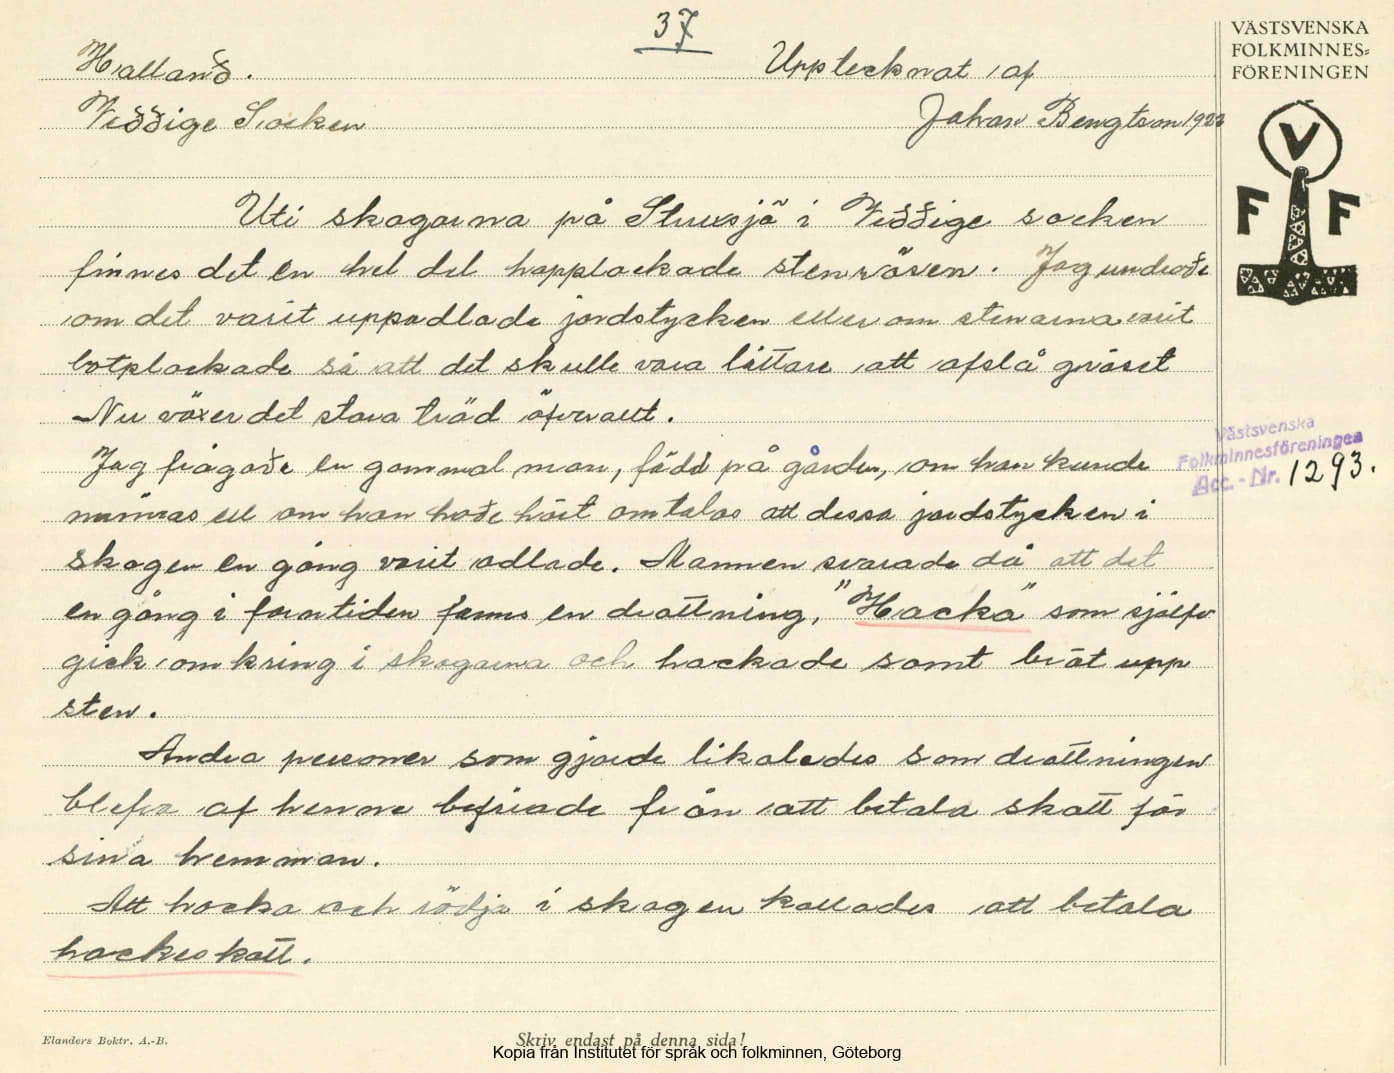 37
Halland.
Upptecknat af
Veddige Socken
Johan Bengtson 1923
Uti skogarna på Struxsjö i Veddige socken
finnes det en hel del hopplockade stenrösen. Jag undrade
om det varit uppodlade jordstycken eller om stenarna varit
botplockade så att det skulle vara lättare att afslå gräset
Nu växer det stora träd öfverallt.
Jag frågade en gammal man, född på gården, om han kunde
minnas ell om han hade hört omtalas att dessa jordstycken i
skogen en gång varit odlade. Mannen svarade då att det
en gång i forntiden fanns en drottning, "Hacka" som sjelfv
gick omkring i skogarna och hackade samt bröt upp
sten.
Andra personer som gjorde likaledes som drottningen
blefvo af henne befriade från att betala skatt för
sina hemman.
Att hacka och rödja i skogen kallades att betala
hackeskatt.
VÄSTSVENSKA
FOLKMINNES=
FÖRENINGEN
V
F F
Västsvenska
Folkminnesföreningen
Acc.-Nr. 1293.
Elanders Boktr. A.-B.
Skriv endast på denna sida!
Kopia från Institutet för språk och folkminnen, Göteborg